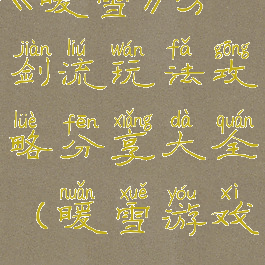 《暖雪》分
jiàn liú wán fǎ gōng
剑流玩法攻
lüè fēn xiǎng dà quán
略分享大全
nuǎn xuě yóu xì
(暖雪游戏